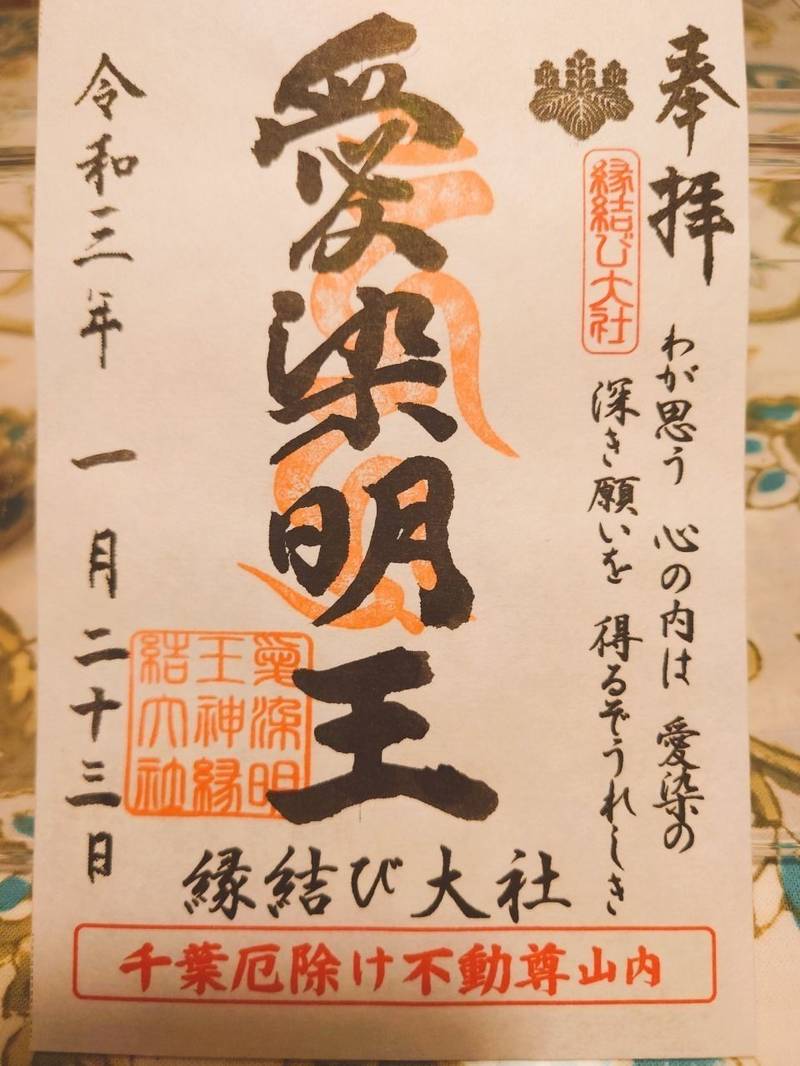 奉拝
縁結び大社
わが思う 心の内は 愛染の
深き願いを 得るぞうれしき
愛染明王
愛染明
王神縁
結大社
令和三年 一月二十三日
縁結び大社
千葉厄除け不動尊山内